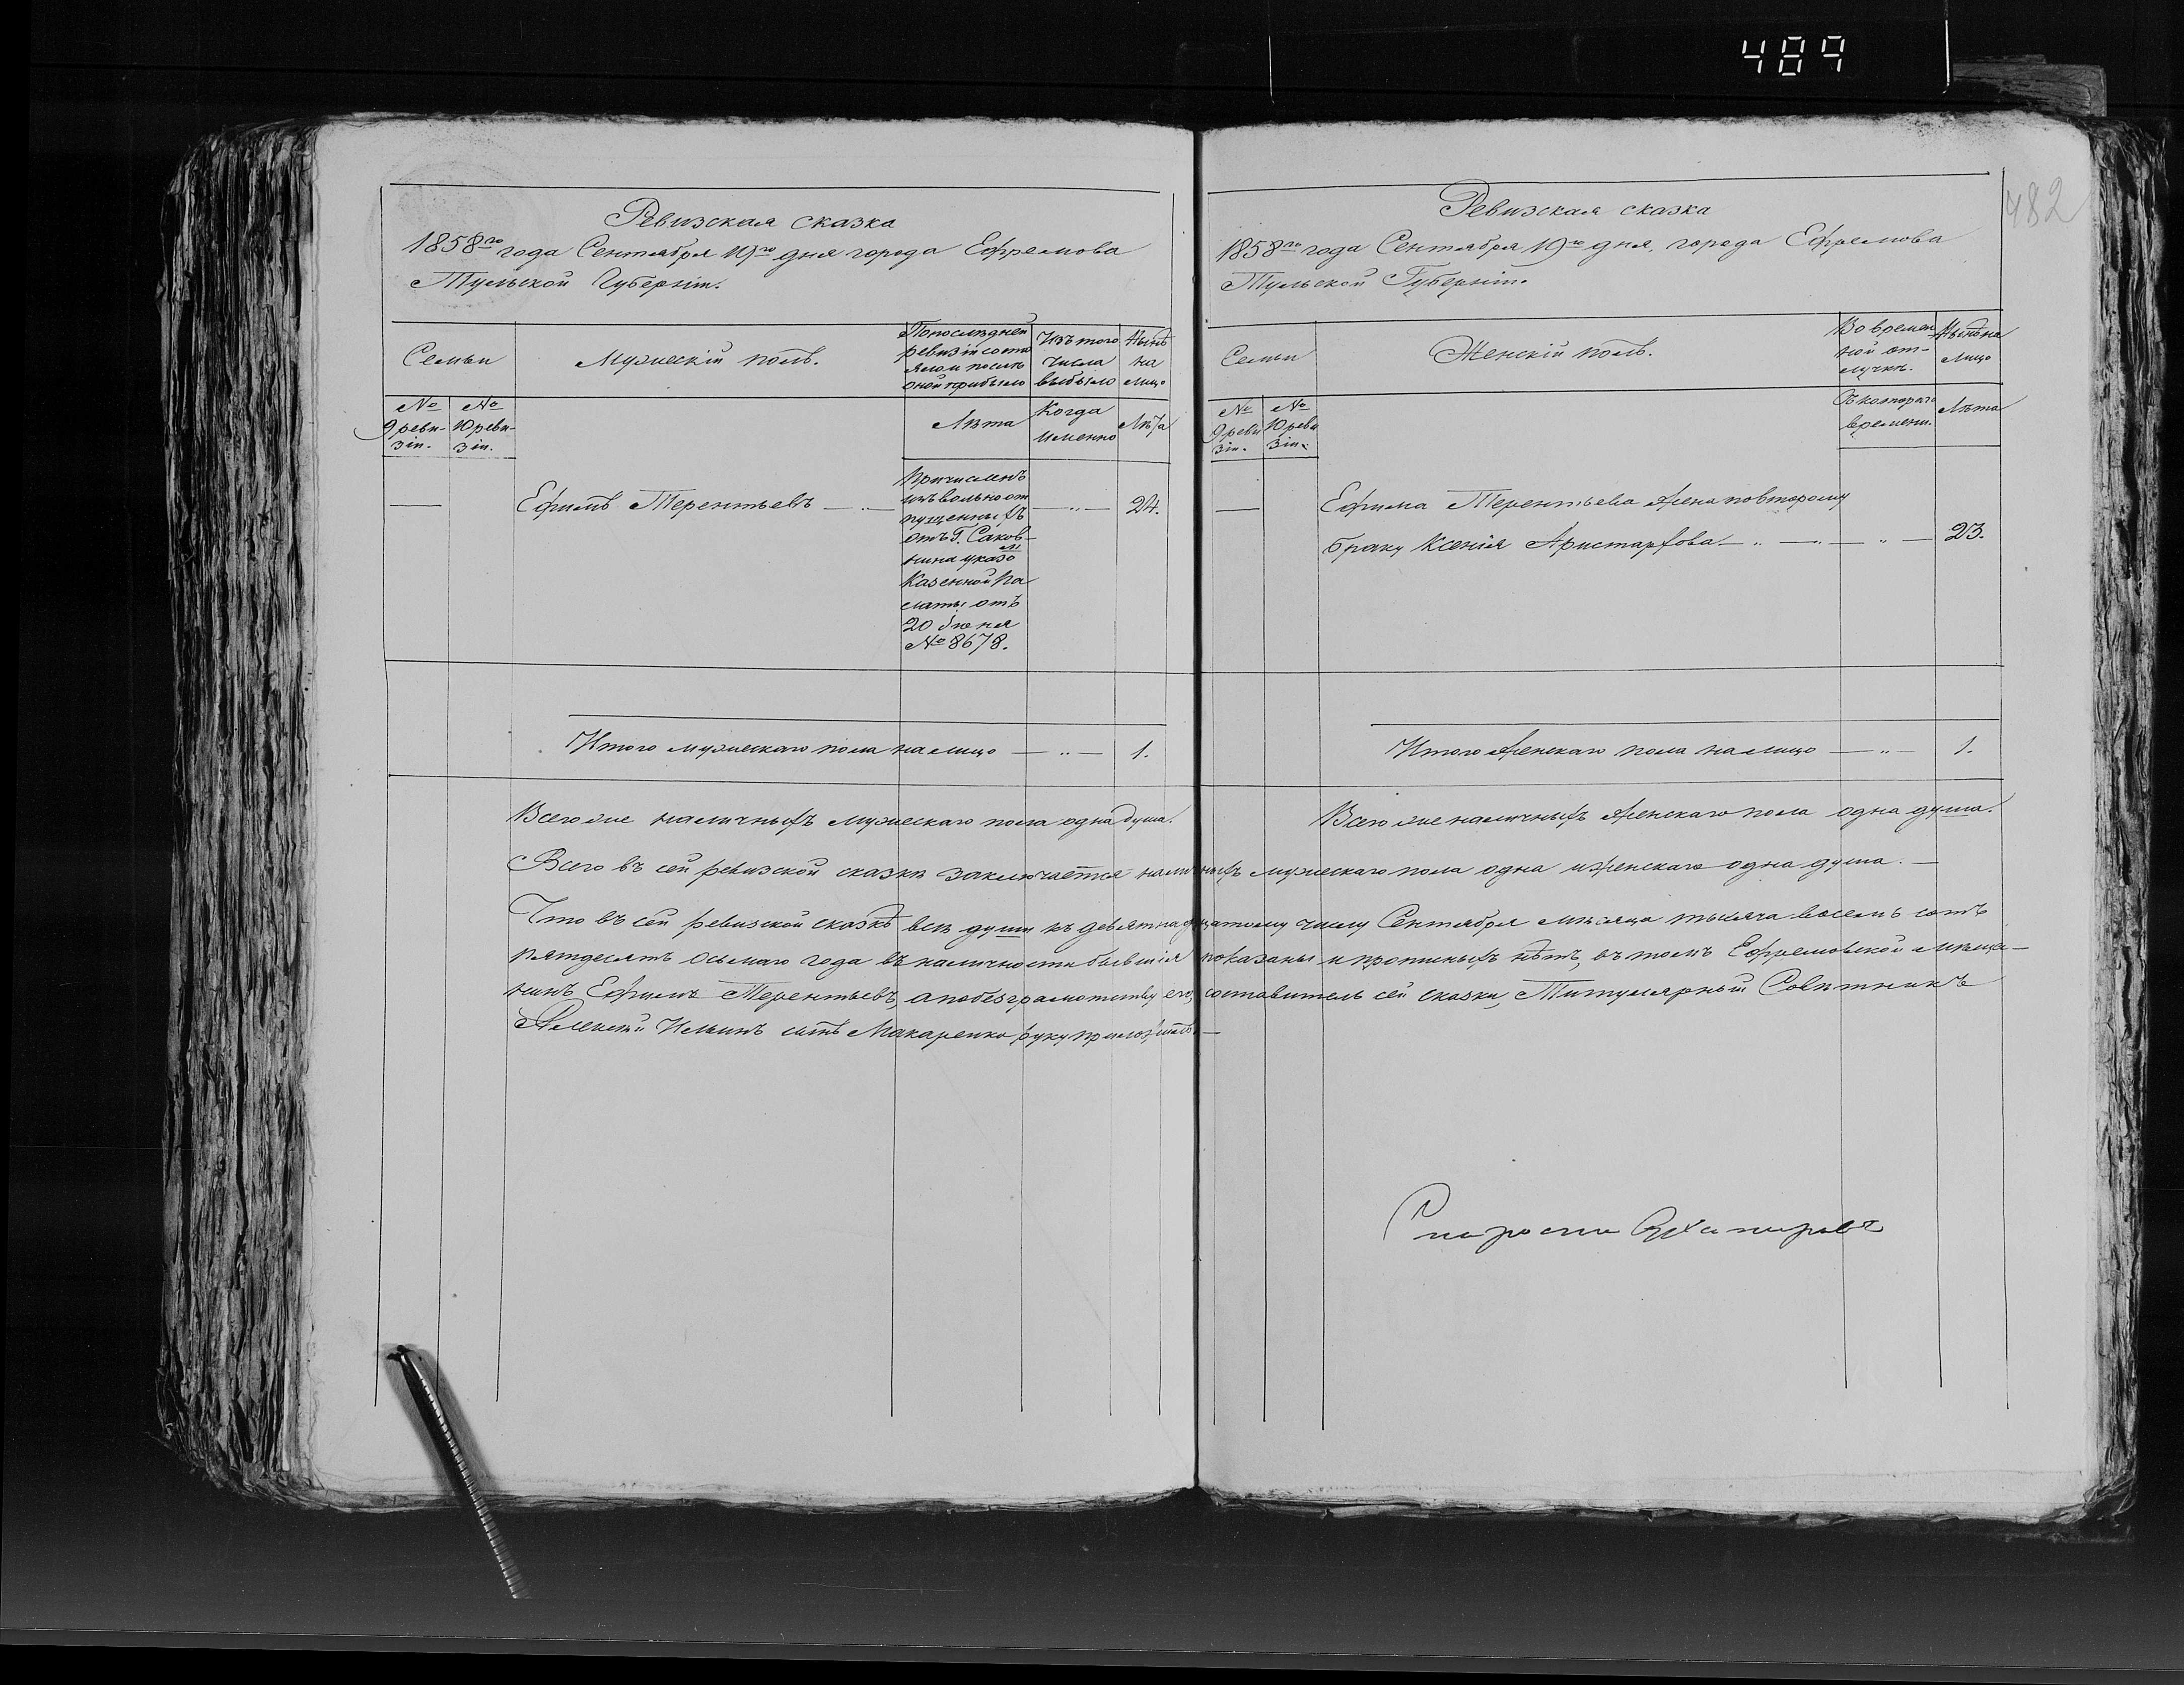 489
482
Ревизская сказка
1858го года Сентября 19го дня города Ефремова
Тульской Губерніи.
Семьи
Мужескій полъ.
По последней
ревизіи состо
яло и послѣ
оной прибыло
Изъ того
числа
выбыло
Нынѣ
на
лицо
№
9 реви-
зіи.
№
10 реви-
зіи.
Лѣта
Когда
именно
Лѣта
— Ефимъ Терентьевъ — „ —
Причисленъ
изъ вольноот
пущенныхъ
отъ Г. Саков-
нина указо
м
Казенной Па
латы отъ
20 Іюня
№ 8678.
— „ —
24.
Итого мужескаго пола на лицо — „ — 1.
Всего же наличныхъ мужескаго пола одна душа.
Ревизская сказка
1858го года Сентября 19го дня, города Ефремова
Тульской Губерніи.
Семьи
Женскій полъ.
Во времен
ной от-
лучкѣ.
Нынѣ на
лицо
№
9 реви
зіи.
№
10 реви
зіи.
Съ котораго
времени.
Лѣта
— Ефима Терентьева жена по второму
браку Ксенія Аристархова — „ — — „ — 23.
Итого женскаго пола на лицо — „ — 1.
Всего же наличныхъ женскаго пола одна душа.
Всего въ сей ревизской сказкѣ заключается наличныхъ мужескаго пола одна и женскаго одна душа. —
Что въ сей ревизской сказкѣ всѣ души къ девятнадцатому числу Сентября мѣсяца тысяча восемь сотъ
пятдесятъ осьмаго года въ наличности бывшія показаны и прописныхъ нѣтъ, въ томъ Ефремовской мѣща-
нинъ Ефимъ Терентьевъ, а по безграмотству его, составитель сей сказки, Титулярный Совѣтникъ
Алексѣй Ильинъ сынъ Макаренко руку приложилъ. —
Староста